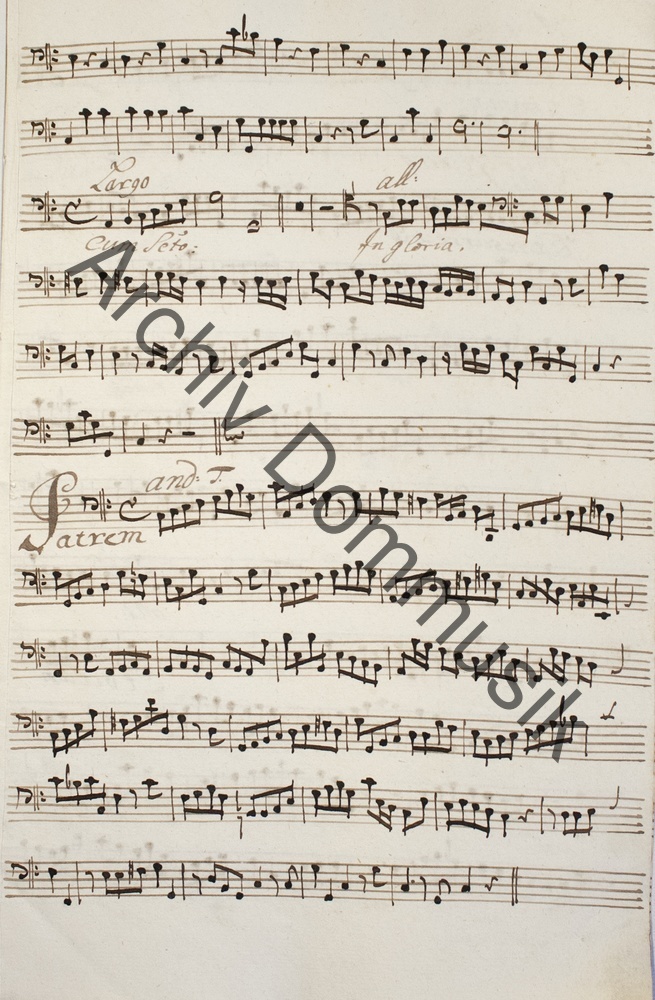 Largo
all:
Cum Scto:
In gloria.
and: T.
Patrem
Archiv Dommusik